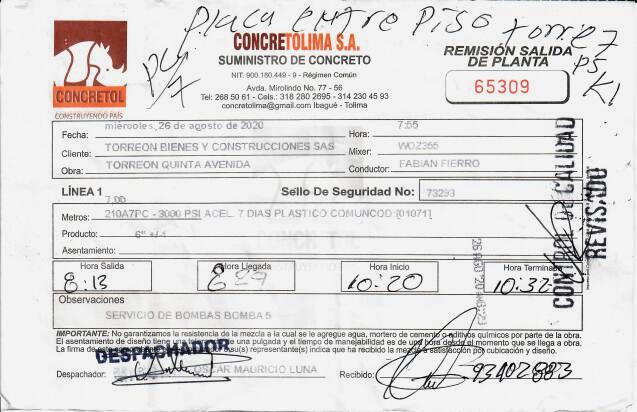 Placa entre Piso torre 7
P5
K1
PU
7
CONCRETOLIMA S.A.
SUMINISTRO DE CONCRETO
NIT. 900.180.449 - 9 - Régimen Común
Avda. Mirolindo No. 77 - 56
Tel: 268 50 61 - Cels.: 318 280 2695 - 314 230 45 93
concretolima@gmail.com Ibagué - Tolima
CONCRETOL
CONSTRUYENDO PAÍS
REMISIÓN SALIDA
DE PLANTA
65309
Fecha: miércoles, 26 de agosto de 2020 Hora: 7:55
Cliente: TORREON BIENES Y CONSTRUCCIONES SAS Mixer: WOZ355
Obra: TORREON QUINTA AVENIDA Conductor: FABIAN FIERRO
LÍNEA 1 Sello De Seguridad No: 73293
7,00
Metros: 210A7PC - 3000 PSI ACEL. 7 DIAS PLASTICO COMUNCOD:[01071]
Producto: 6" +/-1
Asentamiento:
Hora Salida Hora Llegada Hora Inicio Hora Terminada
8:13 8 27 10:20 10:32
Observaciones
SERVICIO DE BOMBAS BOMBA 5
IMPORTANTE: No garantizamos la resistencia de la mezcla a la cual se le agregue agua, mortero de cemento o aditivos químicos por parte de la obra.
El asentamiento de diseño tiene una de una pulgada y el tiempo de manejabilidad es de una hora desde el momento que se llega a obra.
La firma de representante(s) indica que ha recibido la mezcla a satisfacción por cubicación y diseño.
DESPACHADOR
Despachador: OSCAR MAURICIO LUNA Recibido: 93402883
CONTROL DE CALIDAD
REVISADO